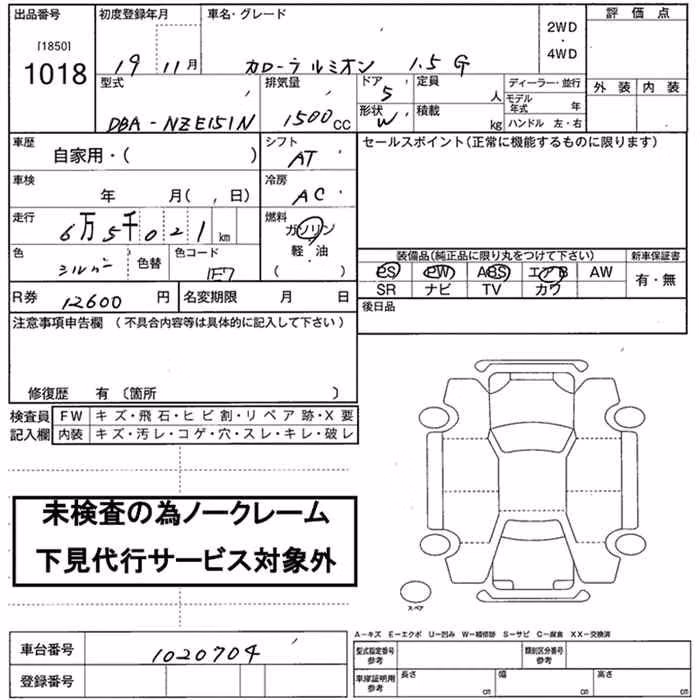 出品番号 初度登録年月 車名・グレード 2WD ・ 4WD 評価点
[1850]
1018 19 11月 カローラルミオン 1.5 G
型式 排気量 ドア 5 定員 人 ディーラー・並行 外装 内装
DBA-NZE151N 1500cc 形状 W 積載 kg モデル年式 年
ハンドル 左・右
車歴 自家用・( ) シフト AT セールスポイント(正常に機能するものに限ります)
車検 年 月( , 日) 冷房 AC
走行 6万5千021km 燃料 ガソリン
軽・油
( )
色 シルバー 色替 色コード 1E7
装備品(純正品に限り丸をつけて下さい) 新車保証書
PS PW ABS エアB AW 有・無
SR ナビ TV カワ
R券 12600円 名変期限 月 日 後日品
注意事項申告欄 (不具合内容等は具体的に記入して下さい)
修復歴 有 〔箇所 〕
検査員 FW キズ・飛石・ヒビ割・リペア跡・X要
記入欄 内装 キズ・汚レ・コゲ・穴・スレ・キレ・破レ
未検査の為ノークレーム
下見代行サービス対象外
スペア
A-キズ E-エクボ U-凹み W-補修跡 S-サビ C-腐食 XX-交換済
車台番号 1020704 型式指定番号 参考 類別区分番号 参考
登録番号 車庫証明用 参考 長さ cm 幅 cm 高さ cm